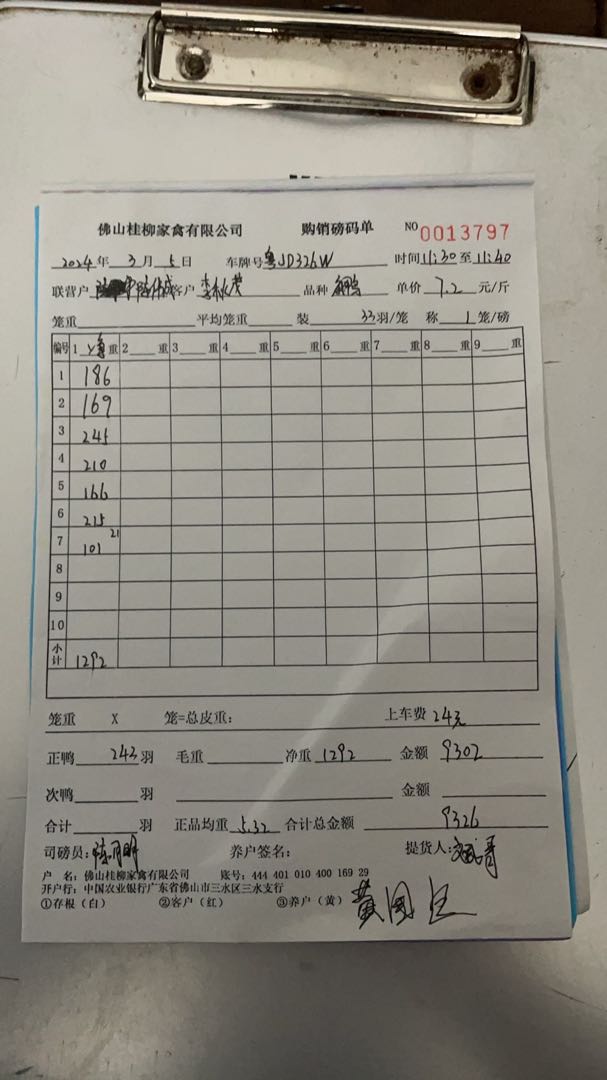 佛山桂柳家禽有限公司 购销磅码单 NO 0013797
2024年 3月 5日 车牌号 粤JD326W 时间 11:30 至 11:40
联营户 客户 品种 单价 7.2 元/斤
笼重 平均笼重 装 33 羽/笼 称 1 笼/磅
编号 1 重 2 重 3 重 4 重 5 重 6 重 7 重 8 重 9 重
1 186
2 169
3 245
4 210
5 166
6 215
7 101 21
8
9
10
小计 1292
笼重 X 笼=总皮重: 上车费 24元
正鸭 243 羽 毛重 净重 1292 金额 9302
次鸭 羽 金额
合计 羽 正品均重 5.32 合计总金额 9326
司磅员: 养户签名: 提货人:
户 名: 佛山桂柳家禽有限公司 账号: 444 401 010 400 169 29
开户行: 中国农业银行广东省佛山市三水区三水支行
①存根(白) ②客户(红) ③养户(黄)